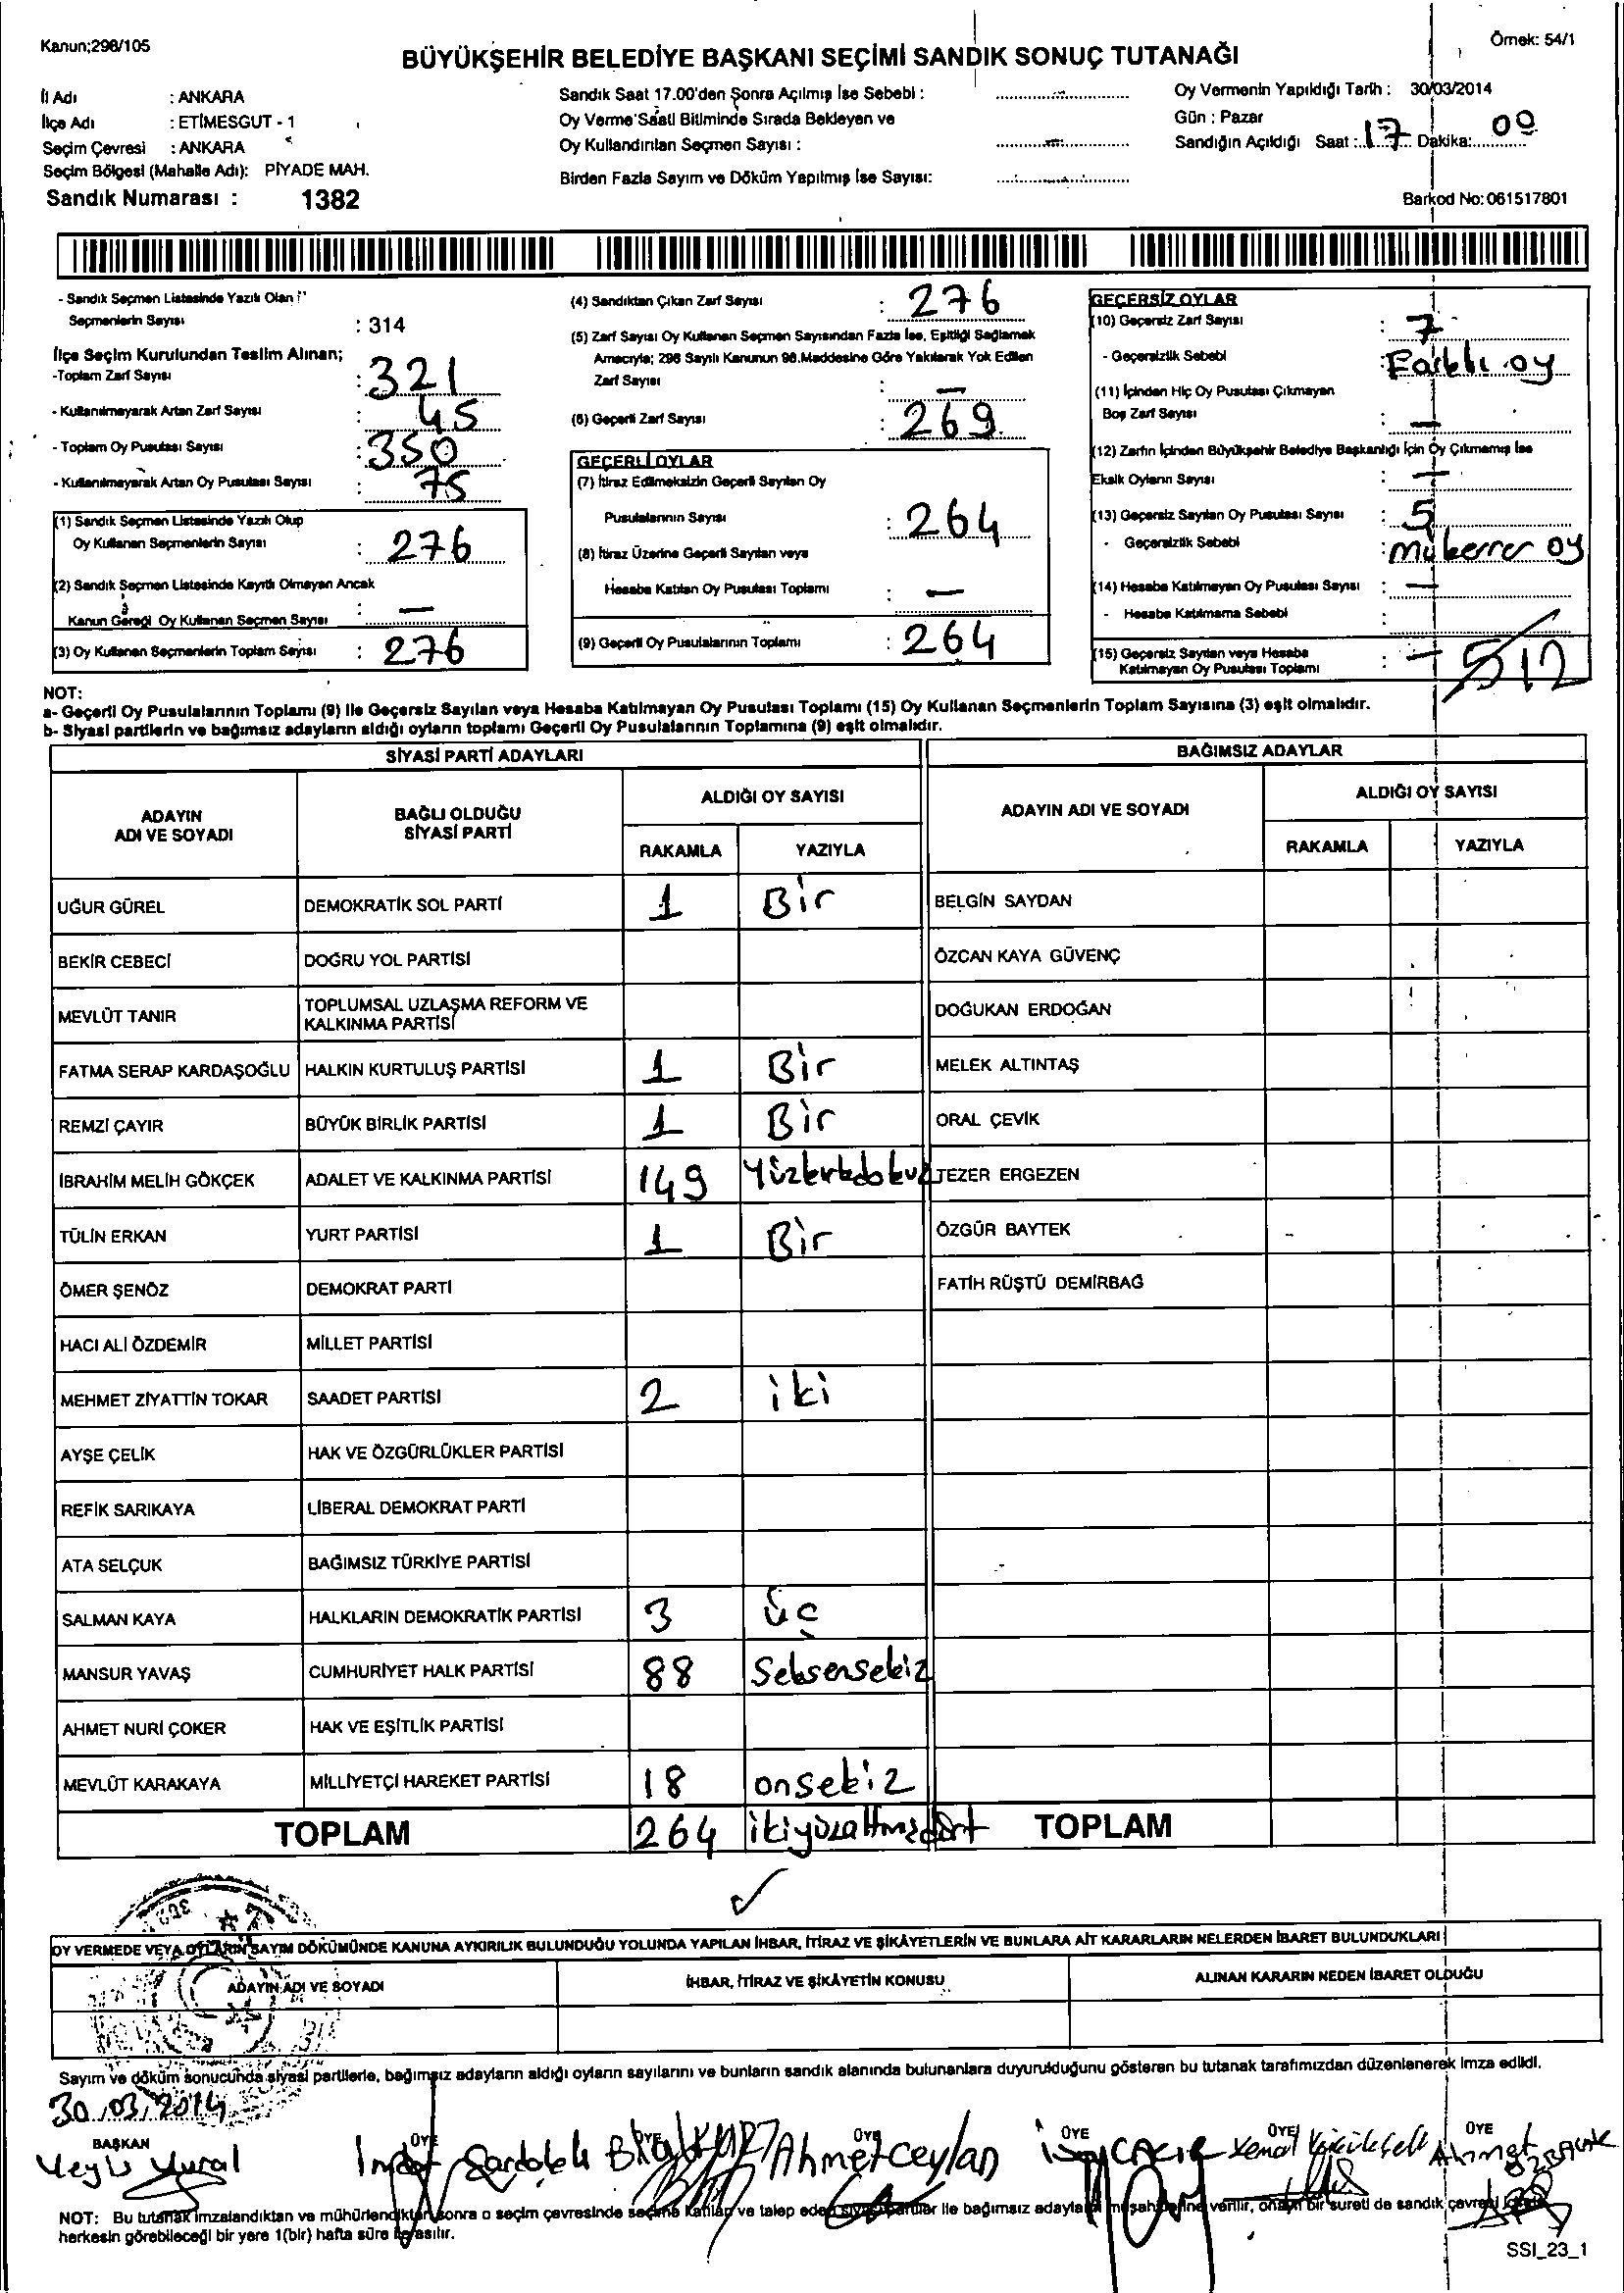 Kanun;298/105
Örnek: 54/1
BÜYÜKŞEHİR BELEDİYE BAŞKANI SEÇİMİ SANDIK SONUÇ TUTANAĞI
İl Adı : ANKARA
İlçe Adı : ETİMESGUT - 1
Seçim Çevresi : ANKARA
Seçim Bölgesi (Mahalle Adı): PİYADE MAH.
Sandık Numarası : 1382
Sandık Saat 17.00'den Sonra Açılmış İse Sebebi :
Oy Verme Saati Bitiminde Sırada Bekleyen ve
Oy Kullandırılan Seçmen Sayısı :
Birden Fazla Sayım ve Döküm Yapılmış İse Sayısı:
Oy Vermenin Yapıldığı Tarih : 30/03/2014
Gün : Pazar
Sandığın Açıldığı Saat : 17 Dakika: 00
Barkod No: 061517801
- Sandık Seçmen Listesinde Yazılı Olan
Seçmenlerin Sayısı : 314
İlçe Seçim Kurulundan Teslim Alınan;
-Toplam Zarf Sayısı : 321
- Kullanılmayarak Artan Zarf Sayısı : 45
- Toplam Oy Pusulası Sayısı : 350
- Kullanılmayarak Artan Oy Pusulası Sayısı : 75
(1) Sandık Seçmen Listesinde Yazılı Olup
Oy Kullanan Seçmenlerin Sayısı : 276
(2) Sandık Seçmen Listesinde Kayıtlı Olmayan Ancak
Kanun Gereği Oy Kullanan Seçmen Sayısı : —
(3) Oy Kullanan Seçmenlerin Toplam Sayısı : 276
(4) Sandıktan Çıkan Zarf Sayısı : 276
(5) Zarf Sayısı Oy Kullanan Seçmen Sayısından Fazla İse, Eşitliği Sağlamak
Amacıyla; 298 Sayılı Kanunun 98.Maddesine Göre Yakılarak Yok Edilen
Zarf Sayısı : —
(6) Geçerli Zarf Sayısı : 269
GEÇERLİ OYLAR
(7) İtiraz Edilmeksizin Geçerli Sayılan Oy
Pusulalarının Sayısı : 264
(8) İtiraz Üzerine Geçerli Sayılan veya
Hesaba Katılan Oy Pusulası Toplamı : —
(9) Geçerli Oy Pusulalarının Toplamı : 264
GEÇERSİZ OYLAR
(10) Geçersiz Zarf Sayısı : 7
- Geçersizlik Sebebi : Farklı oy
(11) İçinden Hiç Oy Pusulası Çıkmayan
Boş Zarf Sayısı : —
(12) Zarfın İçinden Büyükşehir Belediye Başkanlığı İçin Oy Çıkmamış İse
Eksik Oyların Sayısı : —
(13) Geçersiz Sayılan Oy Pusulası Sayısı : 5
- Geçersizlik Sebebi : mükerrer oy
(14) Hesaba Katılmayan Oy Pusulası Sayısı : —
- Hesaba Katılmama Sebebi :
(15) Geçersiz Sayılan veya Hesaba
Katılmayan Oy Pusulası Toplamı : — 5 12
NOT:
a- Geçerli Oy Pusulalarının Toplamı (9) ile Geçersiz Sayılan veya Hesaba Katılmayan Oy Pusulası Toplamı (15) Oy Kullanan Seçmenlerin Toplam Sayısına (3) eşit olmalıdır.
b- Siyasi partilerin ve bağımsız adayların aldığı oyların toplamı Geçerli Oy Pusulalarının Toplamına (9) eşit olmalıdır.
SİYASİ PARTİ ADAYLARI
BAĞIMSIZ ADAYLAR
ADAYIN ADI VE SOYADI
BAĞLI OLDUĞU SİYASİ PARTİ
ALDIĞI OY SAYISI
RAKAMLA YAZIYLA
ADAYIN ADI VE SOYADI
ALDIĞI OY SAYISI
RAKAMLA YAZIYLA
UĞUR GÜREL DEMOKRATİK SOL PARTİ 1 Bir BELGİN SAYDAN
BEKİR CEBECİ DOĞRU YOL PARTİSİ ÖZCAN KAYA GÜVENÇ
MEVLÜT TANIR TOPLUMSAL UZLAŞMA REFORM VE KALKINMA PARTİSİ DOĞUKAN ERDOĞAN
FATMA SERAP KARDAŞOĞLU HALKIN KURTULUŞ PARTİSİ 1 Bir MELEK ALTINTAŞ
REMZİ ÇAYIR BÜYÜK BİRLİK PARTİSİ 1 Bir ORAL ÇEVİK
İBRAHİM MELİH GÖKÇEK ADALET VE KALKINMA PARTİSİ 149 Yüzkırkdokuz TEZER ERGEZEN
TÜLİN ERKAN YURT PARTİSİ 1 Bir ÖZGÜR BAYTEK
ÖMER ŞENÖZ DEMOKRAT PARTİ FATİH RÜŞTÜ DEMİRBAĞ
HACI ALİ ÖZDEMİR MİLLET PARTİSİ
MEHMET ZİYATTİN TOKAR SAADET PARTİSİ 2 iki
AYŞE ÇELİK HAK VE ÖZGÜRLÜKLER PARTİSİ
REFİK SARIKAYA LİBERAL DEMOKRAT PARTİ
ATA SELÇUK BAĞIMSIZ TÜRKİYE PARTİSİ
SALMAN KAYA HALKLARIN DEMOKRATİK PARTİSİ 3 üç
MANSUR YAVAŞ CUMHURİYET HALK PARTİSİ 88 Seksensekiz
AHMET NURİ ÇOKER HAK VE EŞİTLİK PARTİSİ
MEVLÜT KARAKAYA MİLLİYETÇİ HAREKET PARTİSİ 18 onsekiz
TOPLAM 264 ikiyüzaltmışdört TOPLAM
OY VERMEDE VEYA OYLARIN SAYIM DÖKÜMÜNDE KANUNA AYKIRILIK BULUNDUĞU YOLUNDA YAPILAN İHBAR, İTİRAZ VE ŞİKÂYETLERİN VE BUNLARA AİT KARARLARIN NELERDEN İBARET BULUNDUKLARI
ADAYIN ADI VE SOYADI İHBAR, İTİRAZ VE ŞİKÂYETİN KONUSU ALINAN KARARIN NEDEN İBARET OLDUĞU
Sayım ve döküm sonucunda siyasi partilerle, bağımsız adayların aldığı oyların sayılarını ve bunların sandık alanında bulunanlara duyurulduğunu gösteren bu tutanak tarafımızdan düzenlenerek imza edildi.
30.03.2014
BAŞKAN ÜYE ÜYE ÜYE ÜYE ÜYE ÜYE
Veyis Vural Ahmet Ceylan Kemal Ahmet
NOT: Bu tutanak imzalandıktan ve mühürlendikten sonra o seçim çevresinde seçime katılan ve talep eden siyasi partiler ile bağımsız adayların müşahitlerine verilir, onaylı bir sureti de sandık çevresi içinde
herkesin görebileceği bir yere 1(bir) hafta süre ile asılır.
SSI_23_1